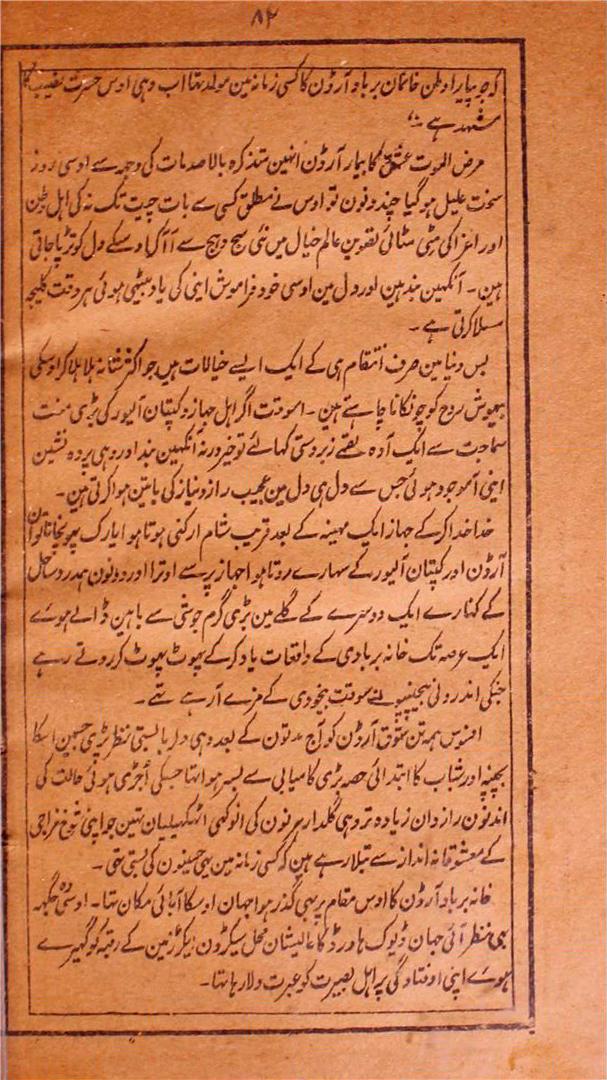 ۸۲
کہ جو پیارا وطن خانمان برباد آرڈن کا کسی زمانہ مین مولد تہا اب وہی اوس حسرت نصیب کا
مشہد ہے ۔"
مرض الموت عشق کا بیمار آرڈن انہین متذکرہ بالا صدمات کی وجہ سے اوسی روز
سخت علیل ہو گیا چند دنون تو اوس نے مطلق کسی سے بات چیت تک نہ کی اہل وطن
اور اعزا کی مٹی مٹائی تصویرین عالم خیال مین نئی سج دہج سے آ آ کر اوسکے دل کو تڑپا جاتی
ہین ۔ آنکہین بند ہین اور دل مین اوسی خود فراموش اینی کی یاد بیٹہی ہوئی ہر وقت کلیجہ
مسلا کرتی ہے ۔
بس دنیا مین صرف انتقام ہی کے ایک ایسے خیالات ہین جو اکثر شانہ ہلا ہلا کر اوسکی
بیہوش روح کو چونکانا چاہتے ہین ۔ اسوقت اگر اہل جہاز و کپتان آلیور کی بڑی منت
سماجت سے ایک آدہ لقمے زبردستی کہا لئے تو خیر ورنہ آنکہین بند اور وہی پردہ نشین
اینی آموجود ہوئی جس سے دل ہی دل مین عجیب راز و نیاز کی باتین ہوا کرتی ہین ۔
خدا خدا کر کے جہاز ایک مہینہ کے بعد قریب شام ارکنی ہوتا ہوا یارک پہونچا تو
آرڈن اور کپتان آلیور کے سہارے روتا ہوا جہاز پر سے اوترا اور دونون ہمدرد ساحل
کے کنارے ایک دوسرے کے گلے مین بڑی گرم جوشی سے باہین ڈالے ہوئے
ایک عرصہ تک خانہ بربادی کے واقعات یاد کر کے پہوٹ پہوٹ کر روتے رہے
جنکی اندرونی بیچینیون سے اسوقت بیخودی کے مزے آ رہے تہے ۔
افسوس ہمہ تن شوق آرڈن کو آج مدتون کے بعد وہی دلربا بستی نظر پڑی جسمین اسکا
بچپنہ اور شباب کا ابتدائی حصہ بڑی کامیابی سے بسر ہوا تہا جسکی اُجڑی ہوئی حالت کی
اندنون رازدان زیادہ تر وہی گلدار ہرنون کی انوکہی اٹہکیلیان تہین جو اپنی شوخ مزاجی
کے معشوقانہ انداز سے بتلا رہے ہین کہ کسی زمانہ مین یہی حسینون کی بستی تہی ۔
خانہ برباد آرڈن کا اوس مقام پر بہی گذر ہوا جہان اوسکا آبائی مکان تہا ۔ اوسی وہ جگہہ
بہی نظر آئی جہان ڈیوک ہاورڈ کا عالیشان محل سیکڑون ایکڑ زمین کے رقبہ کو گہیرے
ہوئے اپنی اوفتادگی پر اہل بصیرت کو عبرت دلا رہا تہا ۔